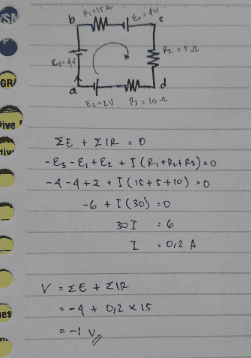 R₁=15Ω
E₁=4V
b
c
E₃=4V
R₂=5Ω
a
d
E₂=2V R₃=10Ω
ΣE + ΣIR = 0
-E₃-E₁+E₂ + I(R₁+R₂+R₃)=0
-4-4+2 + I(15+5+10)=0
-6 + I(30) =0
30I =6
I = 0,2 A
V = ΣE + ΣIR
= -4 + 0,2 × 15
= -1 V